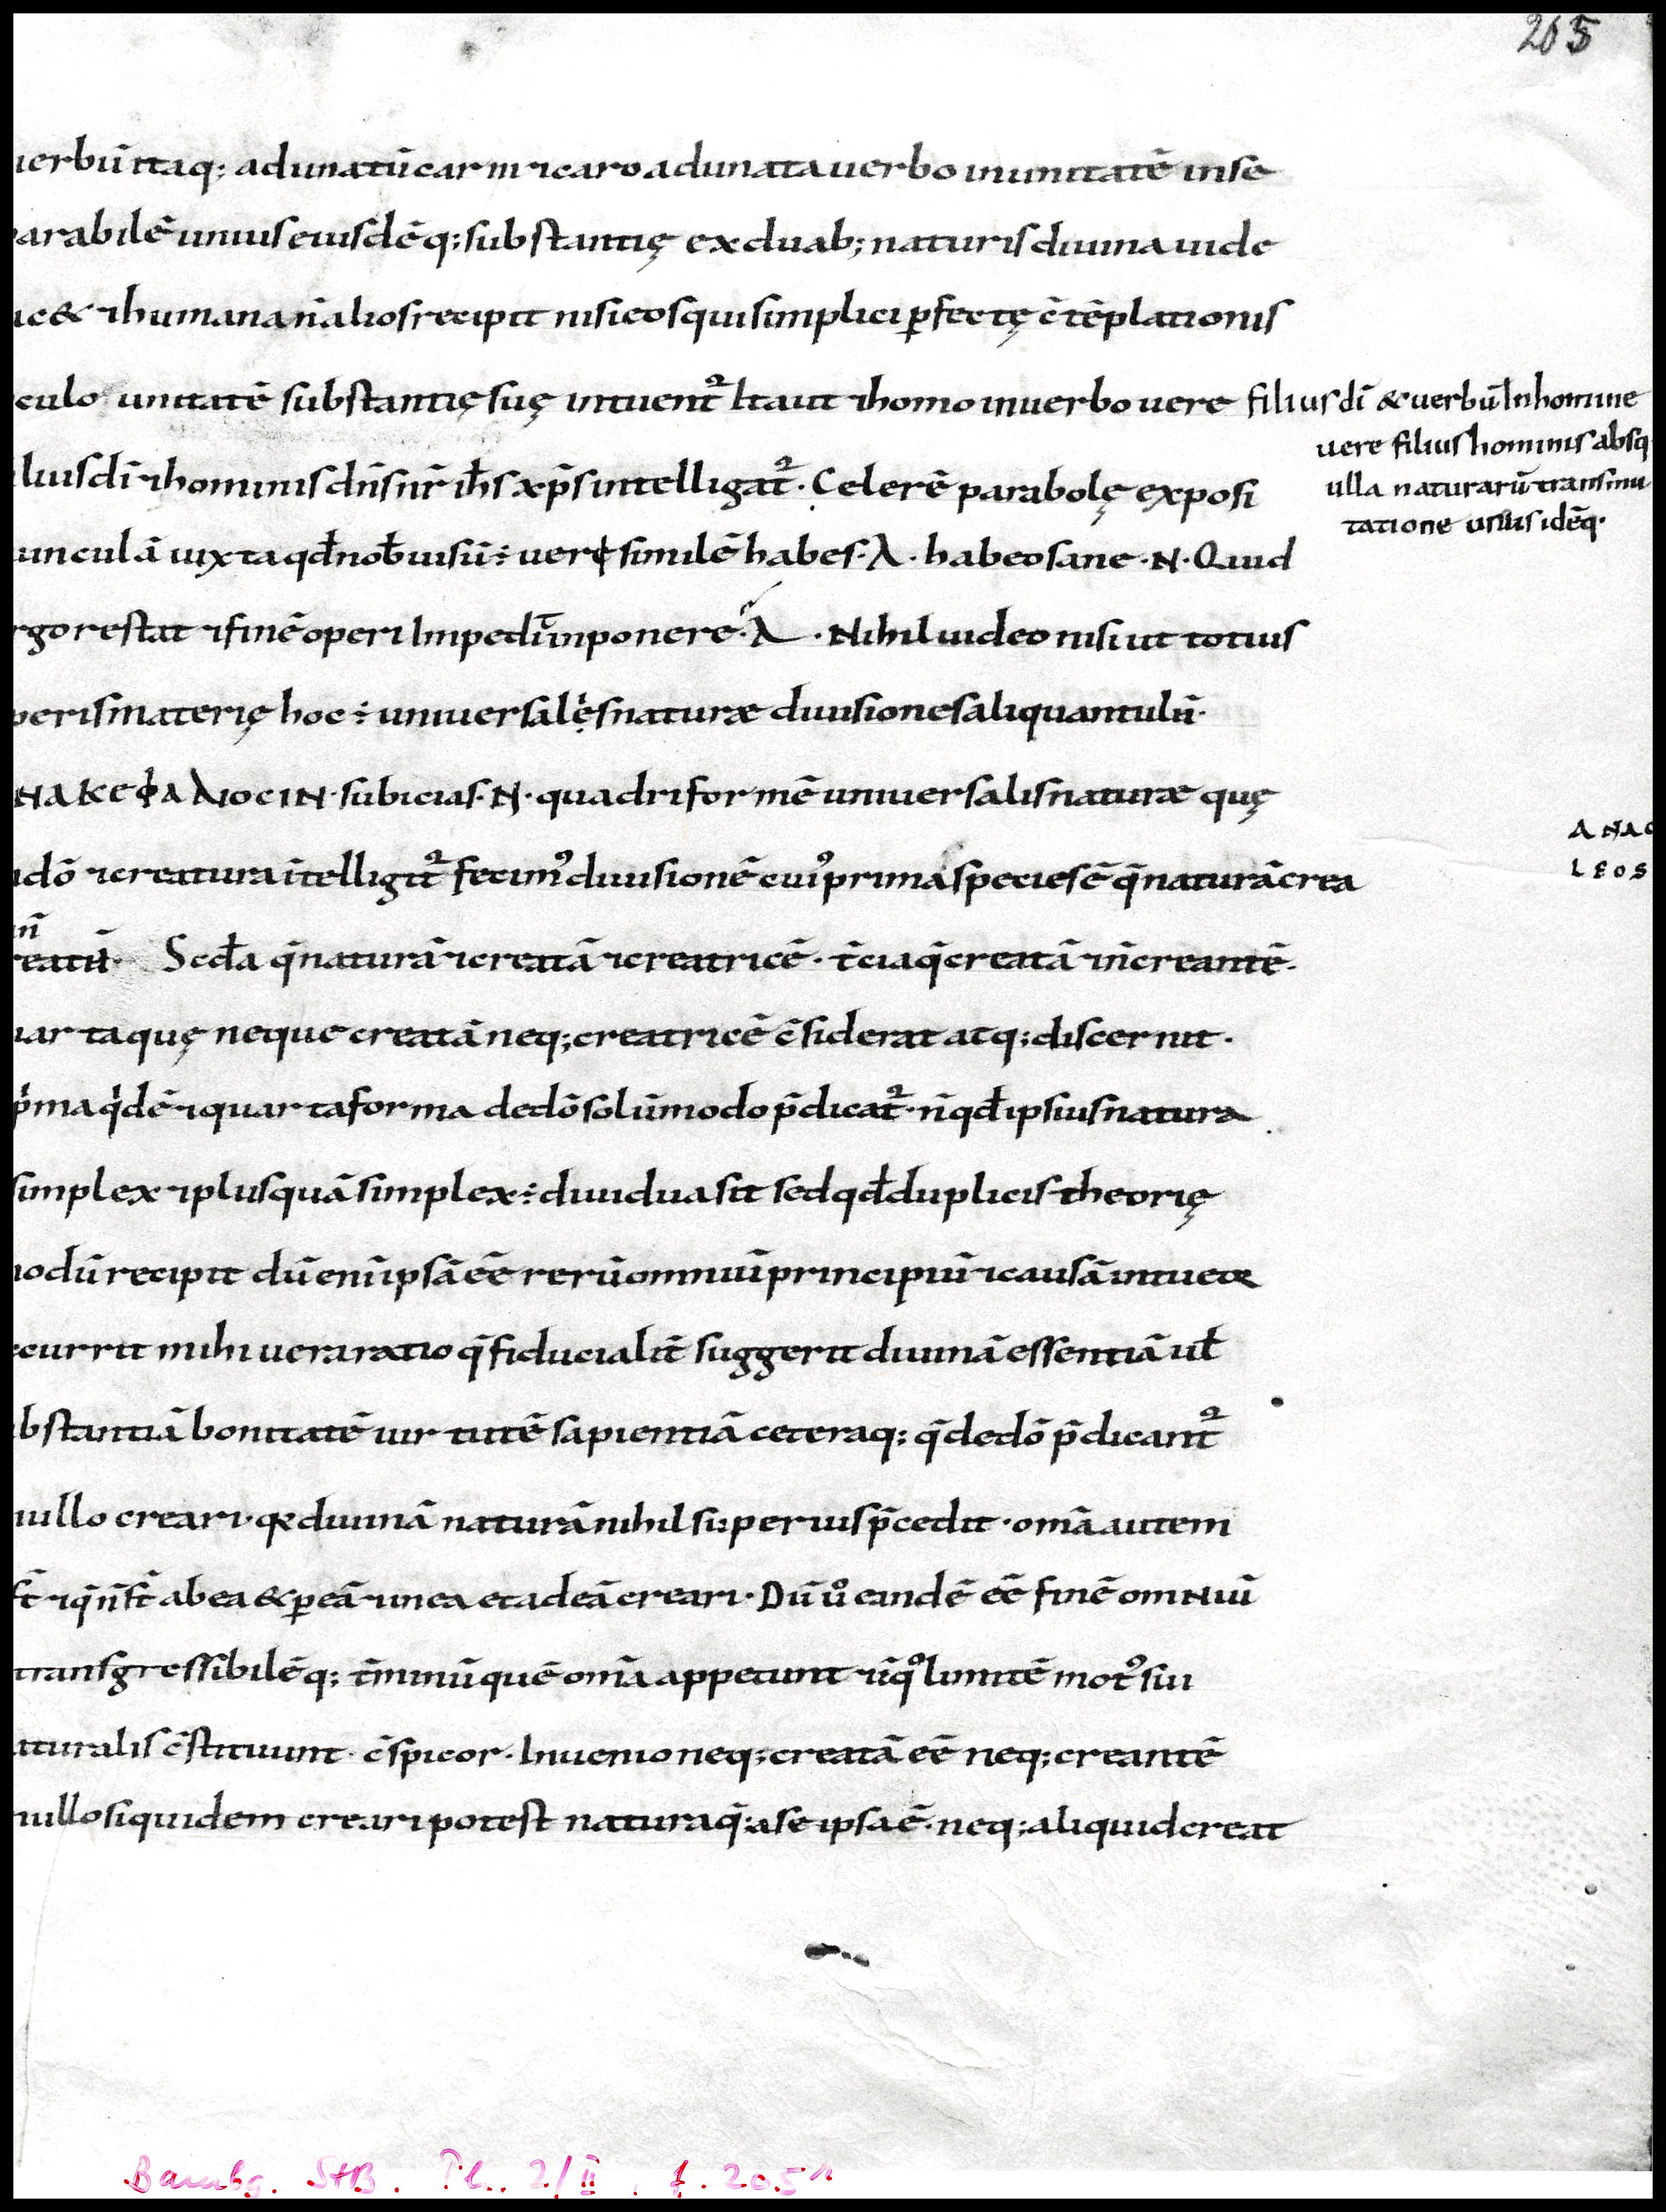 205
uerbū itaq; adunatū carni ⁊ caro adunata uerbo in unitatē inse
arabilē unius eiusdēq; substantię ex duab; naturis diuina uide
ic& ⁊ humana n̄ alios recipit nisi eos qui simplici ꝑfectę c̄tēplationis
culo unitatē substantię suę intuent᷑ Ita ut ⁊ homo in uerbo uere filius dī & uerbū In homine
uere filius hominis absq
ulla naturarū transmu
tatione unus idēq·
lius dī ⁊ hominis dn̄s nr̄ ih̄s xp̄s intelligat᷑. Celerē parabolę exposi
unculā iuxta qđ nob̄ uisū ÷ ueręsimilē habes. λ. habeo sane. N. Quid
rgo restat ⁊ finē operi Impedī inponere. λ. Nihil uideo nisi ut totius
peris materię hoc ÷ uniuersalęs naturæ diuisiones aliquantulū.
NAKEΦAΛIOCIN subicias. N. quadriformē uniuersalis naturæ quę
ANAC
LEOS
idō ⁊ creatura ītelligit᷑ fecim᷒ diuisionē cui᷒ prima species ē q̄ naturā crea
n̄
reatā· Scđa q̄ naturā ⁊ creatā ⁊ creatricē. t̄cia q̄ creatā ⁊ n̄ creantē.
uar ta quę neque creatā neq; creatricē c̄siderat atq; discernit.
p̍ma q̍dē ⁊ quarta forma de dō solūmodo p̄dicat᷑. n̄ qđ ipsius natura
simplex ⁊ plusquā simplex ÷ diuidua sit sed qđ duplicis theorię
odū recipit dū enī ipsā eē rerū omniū principiū ⁊ causā intueor
ccurrit mihi uera ratio q̄ fiducialit̄ suggerit diuinā essentiā uł
bstantiā bonitatē uirtutē sapientiā ceteraq; q̄ de dō p̄dicant᷑
nullo creari. qꝛ diuinā naturā nihil superius p̄cedit. omā autem
st̄ ⁊ q̄ n̄ st̄ ab ea & ꝑ eā ⁊ in ea et ad eā creari. Dū ůo eandē eē finē omNiū
transgressibilēq; t̄minū quē omā appetunt ⁊ ī q̊ limitē mot᷒ sui
aturalis c̄stituunt. c̄spicor. Inuenio neq; creatā eē neq; creantē
nullo siquidem creari potest natura q̄ a se ipsa ē. neq; aliquid creat
Bambg. StB. Pl. 2/II, f. 205r